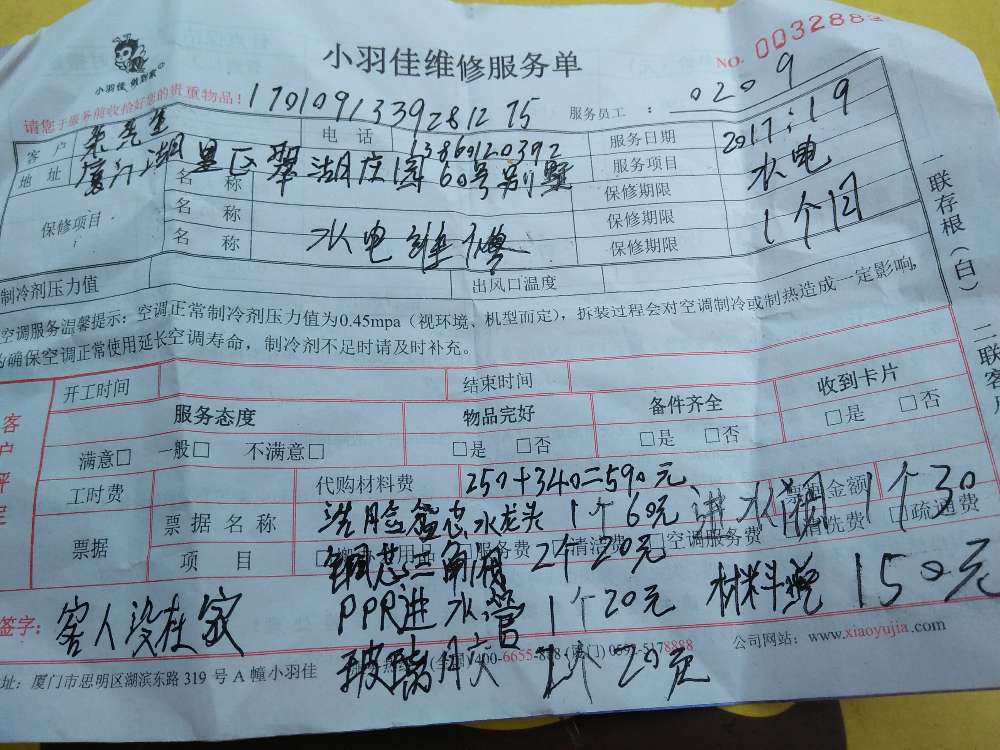 小羽佳维修服务单
小羽佳 做到家
NO. 003288
请您于服务前收拾好您的贵重物品!
17010913392812 75
服务员工 : 0209
客户 电话 13860120392 服务日期 2017:19
地址 厦门湖里区翠湖庄园60号别墅 服务项目 水电
保修项目 名称 保修期限
名称 保修期限 1个月
名称 水电维修 保修期限
制冷剂压力值 出风口温度
空调服务温馨提示:空调正常制冷剂压力值为0.45mpa(视环境、机型而定),拆装过程会对空调制冷或制热造成一定影响,
确保空调正常使用延长空调寿命,制冷剂不足时请及时补充。
开工时间 结束时间
服务态度 物品完好 备件齐全 收到卡片
满意□ 一般□ 不满意□ □是 □否 □是 □否 □是 □否
工时费 代购材料费 250+340=590元
票据 票据名称 洗脸盆 水龙头 1个60元 进水 1个30
票据金额
项目 □服务费 □清洁费 □空调服务费 □清洗费 □疏通费
铜芯三角阀 2个20元
PPR进水管 1个20元 材料费 150元
签字: 客人没在家
玻璃胶 1个20元
(全国)400-6655-888 (厦门) 0592-5178888
公司网站:www.xiaoyujia.com
址:厦门市思明区湖滨东路 319 号 A 幢小羽佳
一联存根(白)
二联客户
客户评定